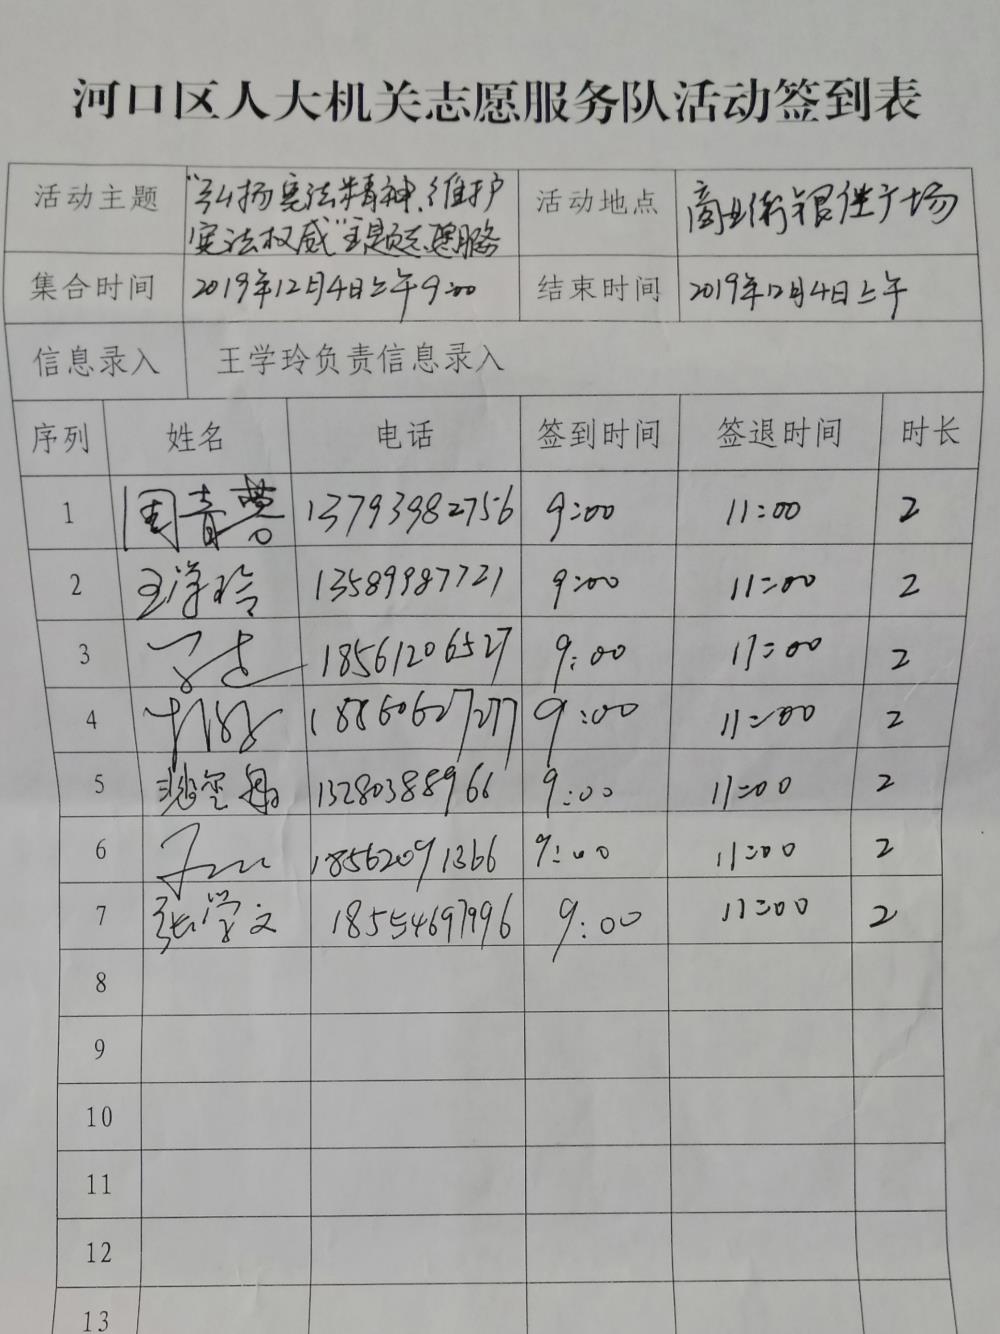 河口区人大机关志愿服务队活动签到表
活动主题 "弘扬宪法精神、维护 活动地点 商业街银座广场
宪法权威"主题志愿服务
集合时间 2019年12月4日上午9:00 结束时间 2019年12月4日上午
信息录入 王学玲负责信息录入
序列 姓名 电话 签到时间 签退时间 时长
1 周青 13793982756 9:00 11:00 2
2 王学玲 13589987721 9:00 11:00 2
3 18561206527 9:00 11:00 2
4 18860627277 9:00 11:00 2
5 13280388966 9:00 11:00 2
6 18562091366 9:00 11:00 2
7 张学文 18554697996 9:00 11:00 2
8
9
10
11
12
13